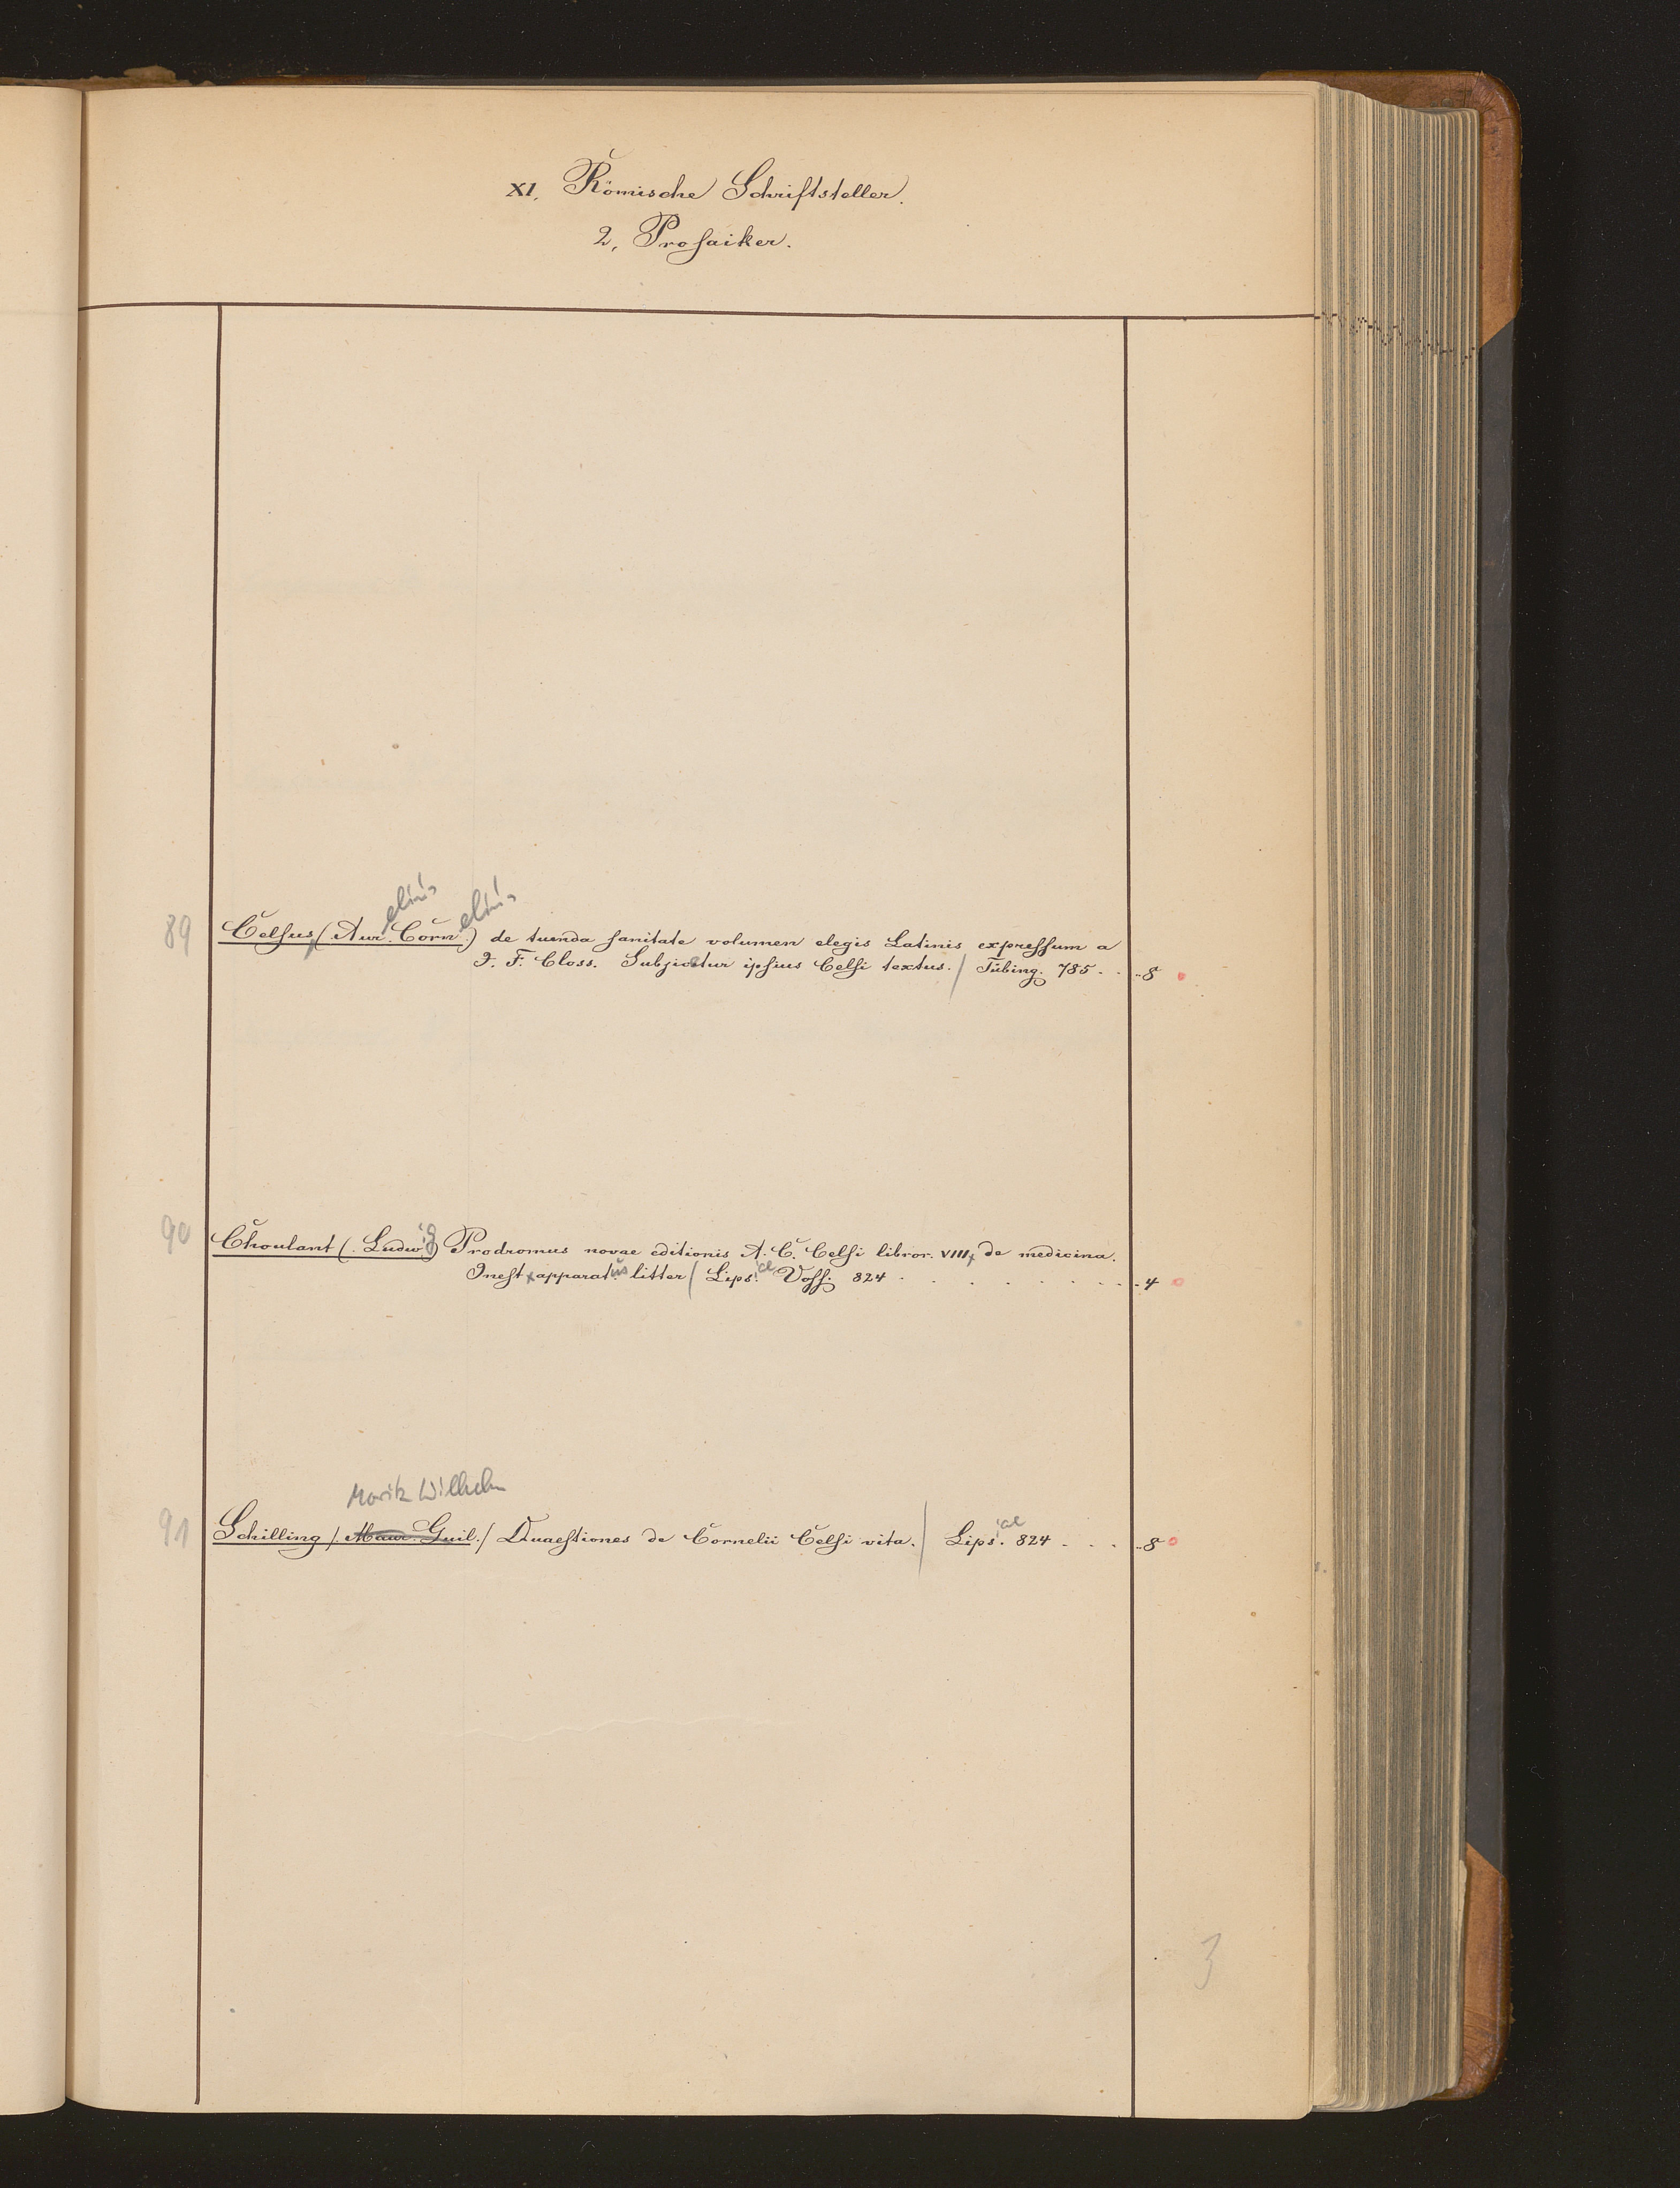 XI. Römische Schriftsteller.
2, Prosaiker.
elius elius
89 Celsus, (Aur. Corn.) de tuenda sanitate volumen elegis Latinis expressum a
J. F. Closs. Subjicitur ipsius Celsi textus. / Tübing. 785 . . . 8
90 Choulant (. Ludwig) Prodromus novae editionis A. C. Celsi libror. VIII, de medicina.
Inest apparatus litter / Lips.iae Voss. 824 . . . . . . . . 4
Moritz Wilhelm
91 Schilling /. Maur. Guil./ Quaestiones de Cornelii Celsi vita. / Lips.iae 824 . . . . 8
3